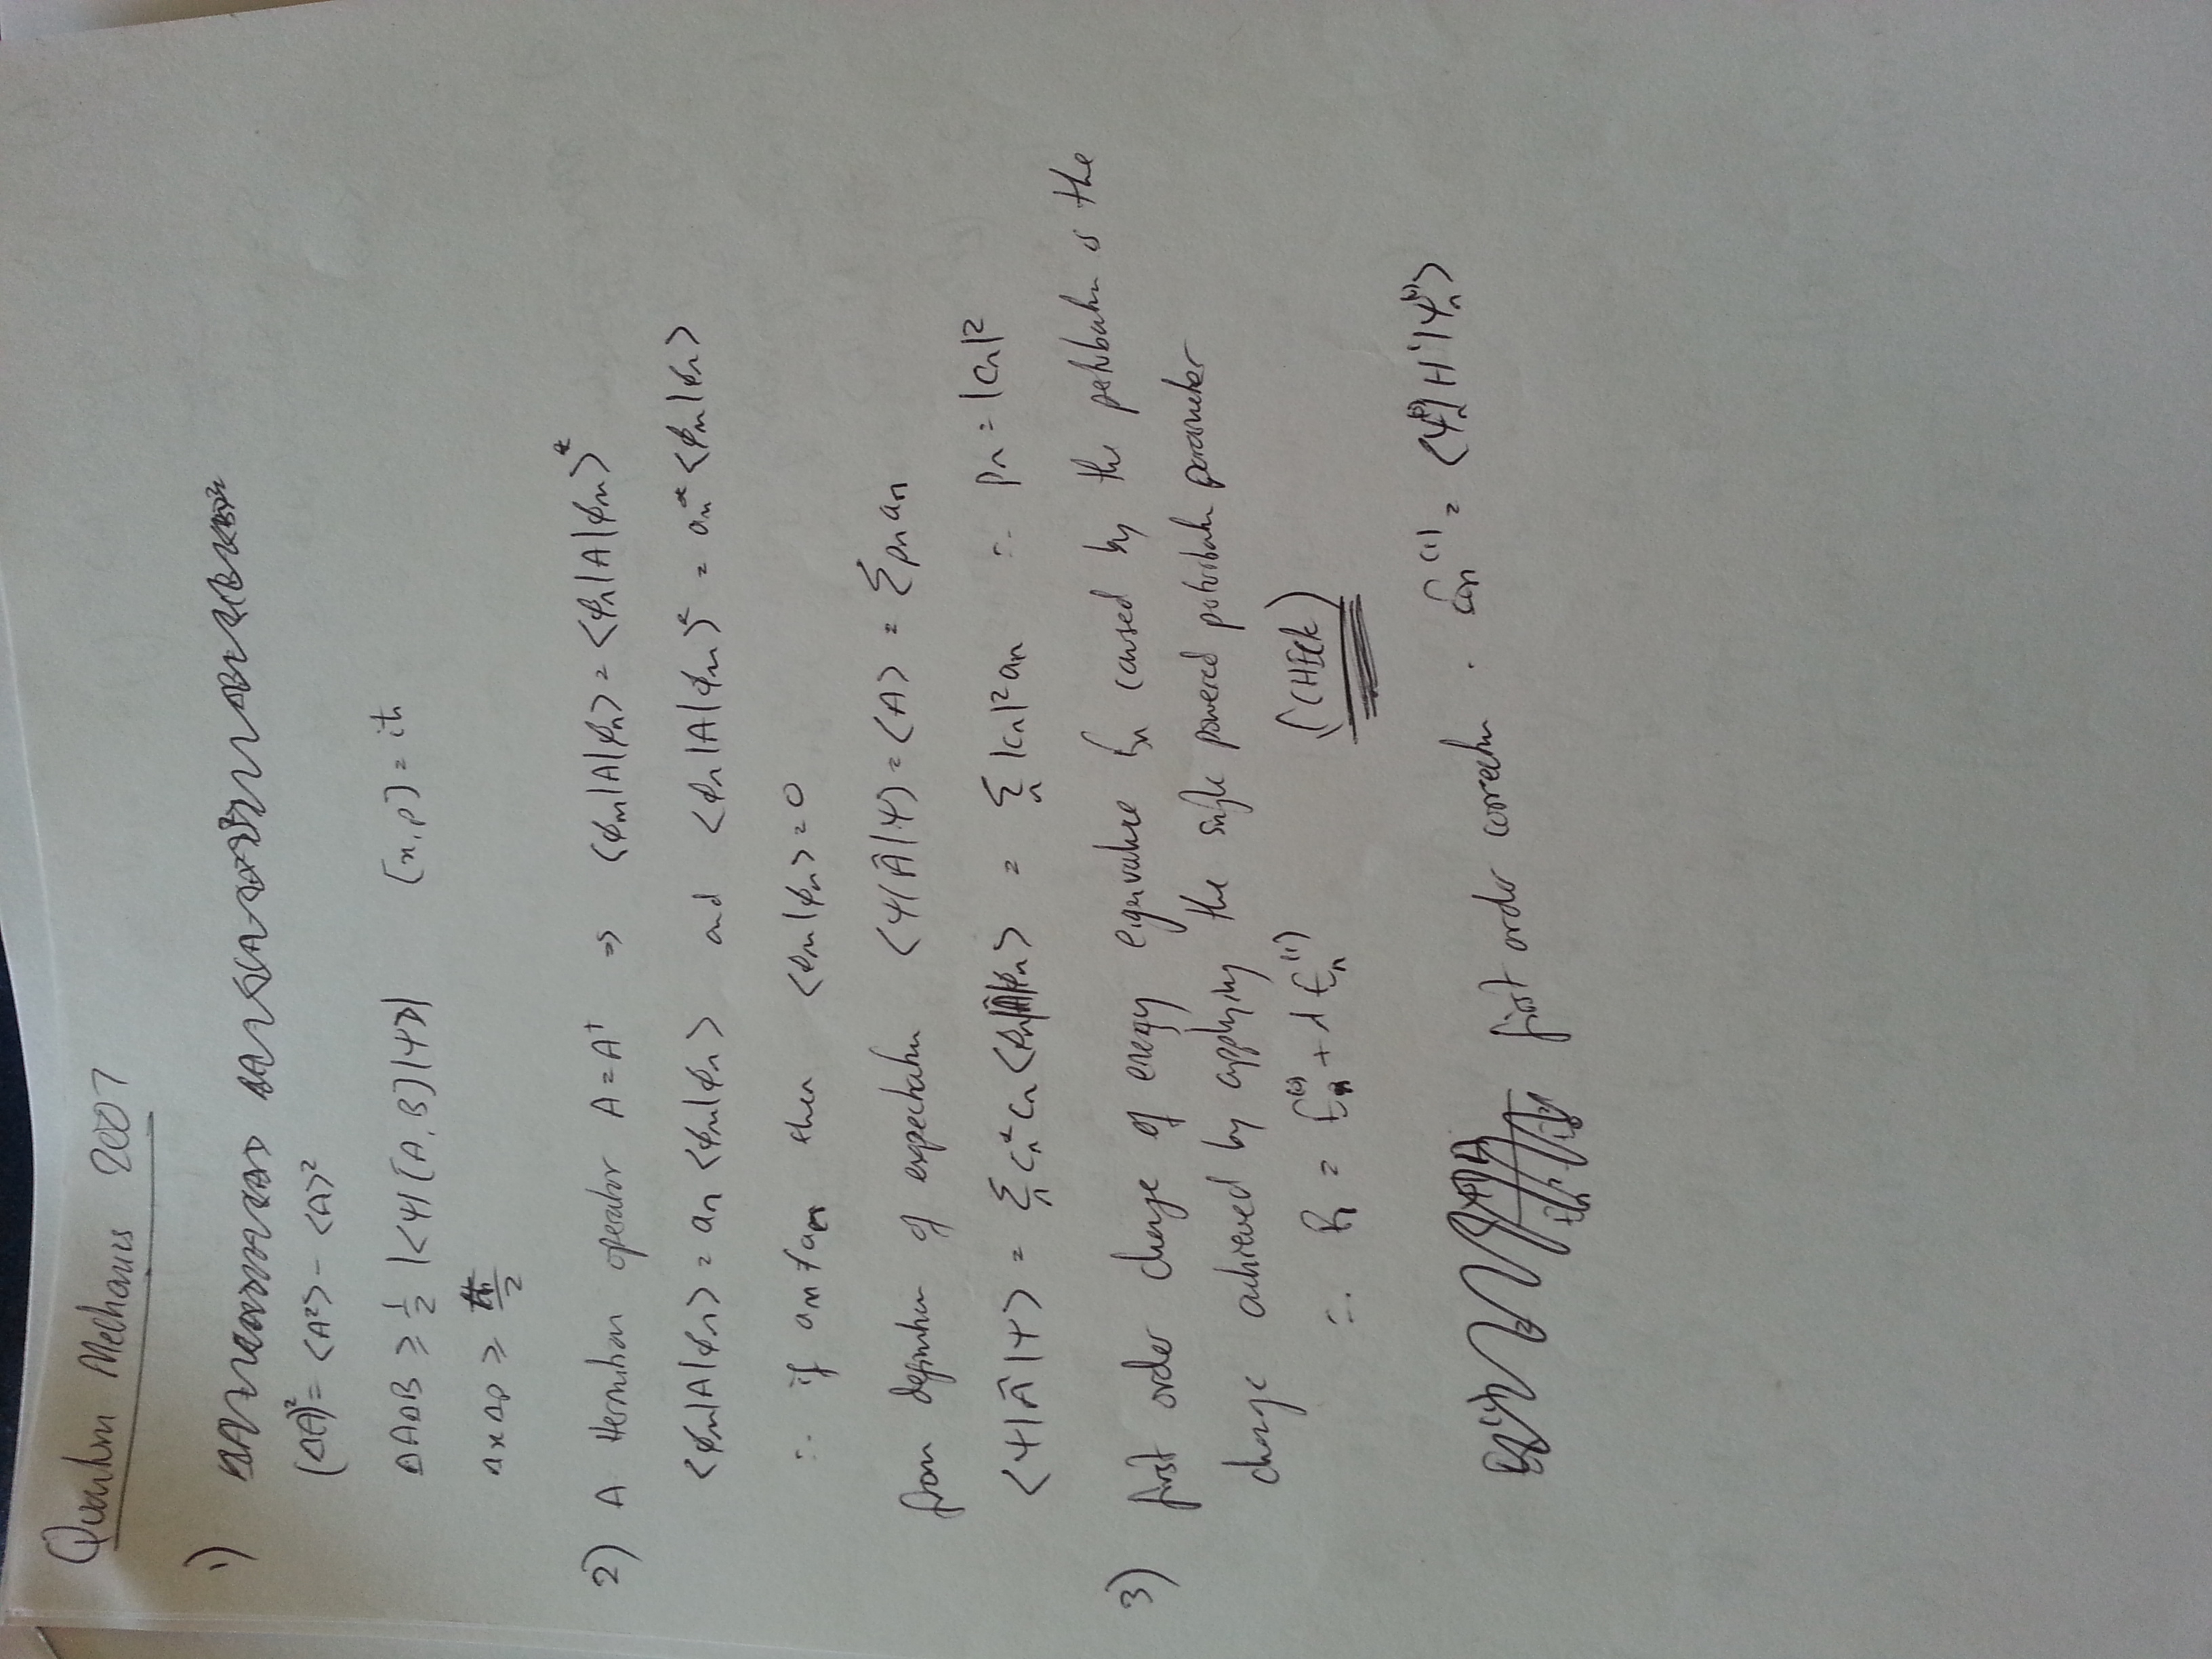 Quantum Mechanics 2007
1)
(ΔA)² = ⟨A²⟩ − ⟨A⟩²
ΔAΔB ≥ 1/2 |⟨ψ|[A,B]|ψ⟩| [x,p] = iħ
ΔxΔp ≥ ħ/2
2) A Hermitian operator A = A† ⇒ ⟨ϕm|A|ϕn⟩ = ⟨ϕn|A|ϕm⟩*
⟨ϕm|A|ϕn⟩ = an ⟨ϕm|ϕn⟩ and ⟨ϕn|A|ϕm⟩* = am* ⟨ϕm|ϕn⟩
∴ if an ≠ am then ⟨ϕm|ϕn⟩ = 0
from definition of expectation ⟨ψ|Â|ψ⟩ = ⟨A⟩ = Σ pn an
⟨ψ|Â|ψ⟩ = Σn cn* cn ⟨ϕn|Â|ϕn⟩ = Σn |cn|² an ∴ pn = |cn|²
3) first order change of energy eigenvalue En caused by the perturbation is the
change achieved by applying the single powered perturbation parameter
∴ En = En⁽⁰⁾ + λ En⁽¹⁾ (CHECK)
first order correction . En⁽¹⁾ = ⟨ψn⁽⁰⁾|H'|ψn⁽⁰⁾⟩